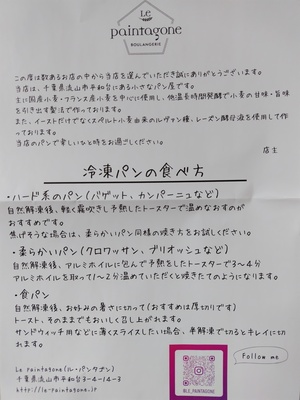 Le
paintagone
BOULANGERIE
この度は数あるお店の中から当店を選んでいただき誠にありがとうございます。
当店は、千葉県流山市平和台にある小さなパン屋です。
主に国産小麦・フランス産小麦を中心に使用し、低温長時間発酵で小麦の甘味・旨味
を引き出す製法で作っております。
また、イーストだけでなくスペルト小麦由来のルヴァン種、レーズン酵母液を使用して作
っております。
当店のパンで楽しいひと時をお過ごしください。
店主
冷凍パンの食べ方
・ハード系のパン(バゲット、カンパーニュなど)
自然解凍後、軽く霧吹きし予熱したトースターで温めなおすのが
おすすめです。
焦げそうな場合は、柔らかいパン同様の焼き方をお試しください。
・柔らかいパン(クロワッサン、ブリオッシュなど)
自然解凍後、アルミホイルに包んで予熱をしたトースターで3~4分
アルミホイルを取って1~2分温めていただくと焼きたてのようになります。
・食パン
自然解凍後、お好みの暑さに切って(おすすめは厚切りです)
トースト、そのままでもおいしく召し上がれます。
サンドウィッチ用などに薄くスライスしたい場合、半解凍で切るとキレイに切
れます。
Follow me
Le paintagone(ル・パンタゴン)
千葉県流山市平和台3-4-14-3
http://lepaintagone.jp
@LE_PAINTAGONE